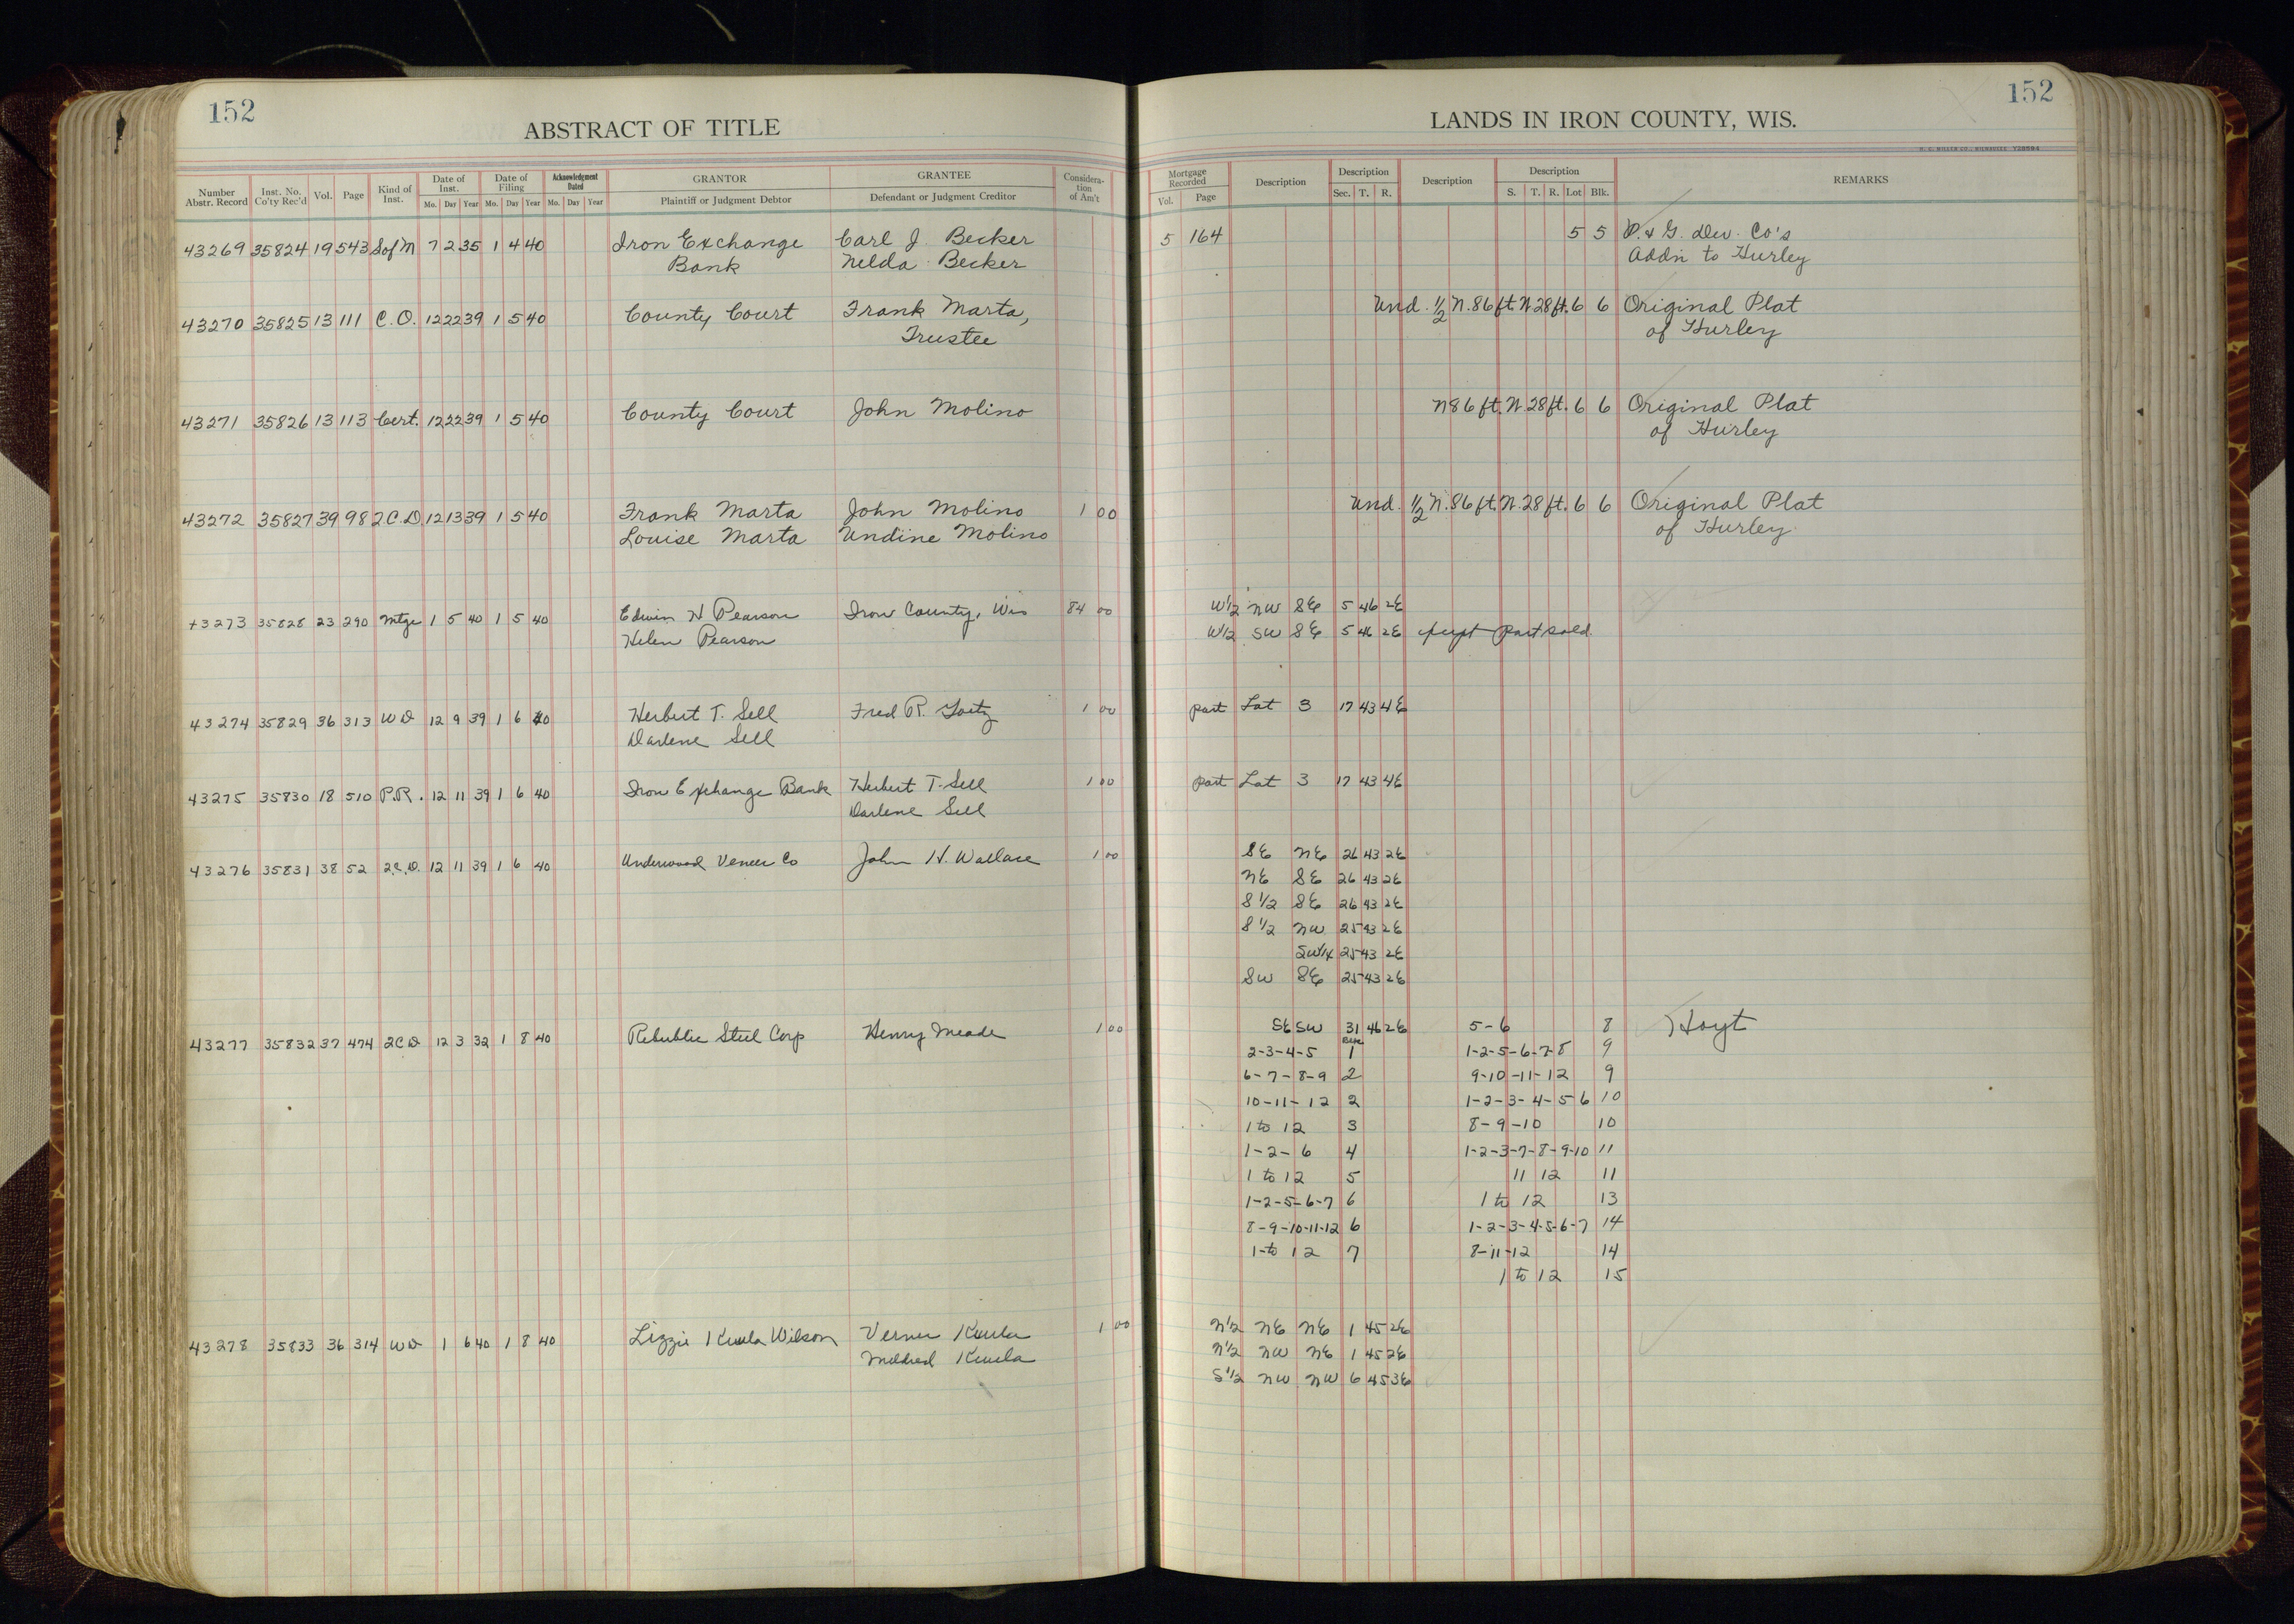 152
ABSTRACT OF TITLE
Number Abstr. Record Inst. No. Co'ty Rec'd Vol. Page Kind of Inst. Date of Inst. Mo. Day Year Date of Filing Mo. Day Year Acknowledgment Dated Mo. Day Year GRANTOR Plaintiff or Judgment Debtor GRANTEE Defendant or Judgment Creditor Considera-tion of Am't
43269 35824 19 543 S of M 7 2 35 1 4 40 Iron Exchange Carl J. Becker
Bank Nelda Becker
43270 35825 13 111 C.O. 12 22 39 1 5 40 County Court Frank Marta,
Trustee
43271 35826 13 113 Cert. 12 22 39 1 5 40 County Court John Molino
43272 35827 39 98 2C.D. 12 13 39 1 5 40 Frank Marta John Molino 1 00
Louise Marta Undine Molino
43273 35828 23 290 Mtge 1 5 40 1 5 40 Edwin H Pearson Iron County, Wis 84 00
Helen Pearson
43274 35829 36 313 WD 12 9 39 1 6 40 Herbert T. Sell Fred R. 1 00
Darlene Sell
43275 35830 18 510 P.R. 12 11 39 1 6 40 Iron Exchange Bank Herbert T. Sell 1 00
Darlene Sell
43276 35831 38 52 2C.D. 12 11 39 1 6 40 Underwood Veneer Co John H. Wallace 1 00
43277 35832 37 474 2CD 12 3 32 1 8 40 Rebublic Steel Corp Henry Meade 1 00
43278 35833 36 314 WD 1 6 40 1 8 40 Lizzie Kuula Wilson Verner Kuula 1 00
Mildred Kuula
152
LANDS IN IRON COUNTY, WIS.
Mortgage Recorded Vol. Page Description Description Sec. T. R. Description Description S. T. R. Lot Blk. REMARKS
5 164 5 5 D. & G. Dev. Co's
Addn to Hurley
Und. 1/2 N. 86 ft. W. 28 ft. 6 6 Original Plat
of Hurley
N 86 ft. W. 28 ft. 6 6 Original Plat
of Hurley
Und. 1/2 N. 86 ft. W. 28 ft. 6 6 Original Plat
of Hurley
W1/2 NW SE 5 46 2E
W1/2 SW SE 5 46 2E except part sold.
part Lot 3 17 43 4E
part Lot 3 17 43 4E
SE NE 26 43 2E
NE SE 26 43 2E
S 1/2 SE 26 43 2E
S 1/2 NW 25 43 2E
SW1/4 25 43 2E
SW SE 25 43 2E
SE SW 31 46 2E 5-6 8 Hoyt
Blk
2-3-4-5 1 1-2-5-6-7-8 9
6-7-8-9 2 9-10-11-12 9
10-11-12 2 1-2-3-4-5 6 10
1 to 12 3 8-9-10 10
1-2-6 4 1-2-3-7-8-9-10 11
1 to 12 5 11 12 11
1-2-5-6-7 6 1 to 12 13
8-9-10-11-12 6 1-2-3-4-5-6-7 14
1-to 12 7 8-11-12 14
1 to 12 15
N1/2 NE NE 1 45 2E
N1/2 NW NE 1 45 2E
S1/2 NW NW 6 45 3E